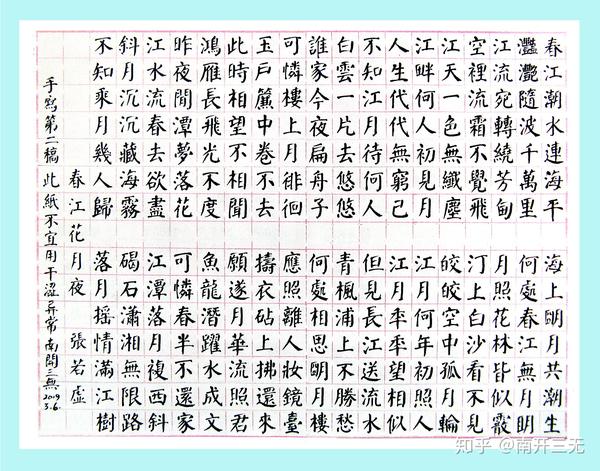 春江潮水連海平 海上明月共潮生
灩灩隨波千萬里 何處春江無月明
江流宛轉繞芳甸 月照花林皆似霰
空裡流霜不覺飛 汀上白沙看不見
江天一色無纖塵 皎皎空中孤月輪
江畔何人初見月 江月何年初照人
人生代代無窮已 江月年年望相似
不知江月待何人 但見長江送流水
白雲一片去悠悠 青楓浦上不勝愁
誰家今夜扁舟子 何處相思明月樓
可憐樓上月徘徊 應照離人妝鏡臺
玉戶簾中卷不去 擣衣砧上拂還來
此時相望不相聞 願遂月華流照君
鴻雁長飛光不度 魚龍潛躍水成文
昨夜閒潭夢落花 可憐春半不還家
江水流春去欲盡 江潭落月複西斜
斜月沉沉藏海霧 碣石瀟湘無限路
不知乘月幾人歸 落月搖情滿江樹
春江花月夜 張若虛
手寫第二稿 此紙不宜用 干澀異常 南開三無 2019 3.6.
知乎 @南开三无